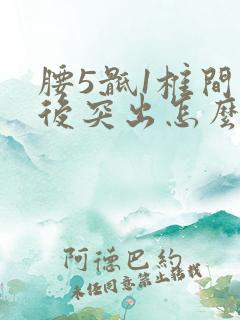 腰5骶1椎間
後突出怎麼
阿德巴約
未经同意禁止搭载